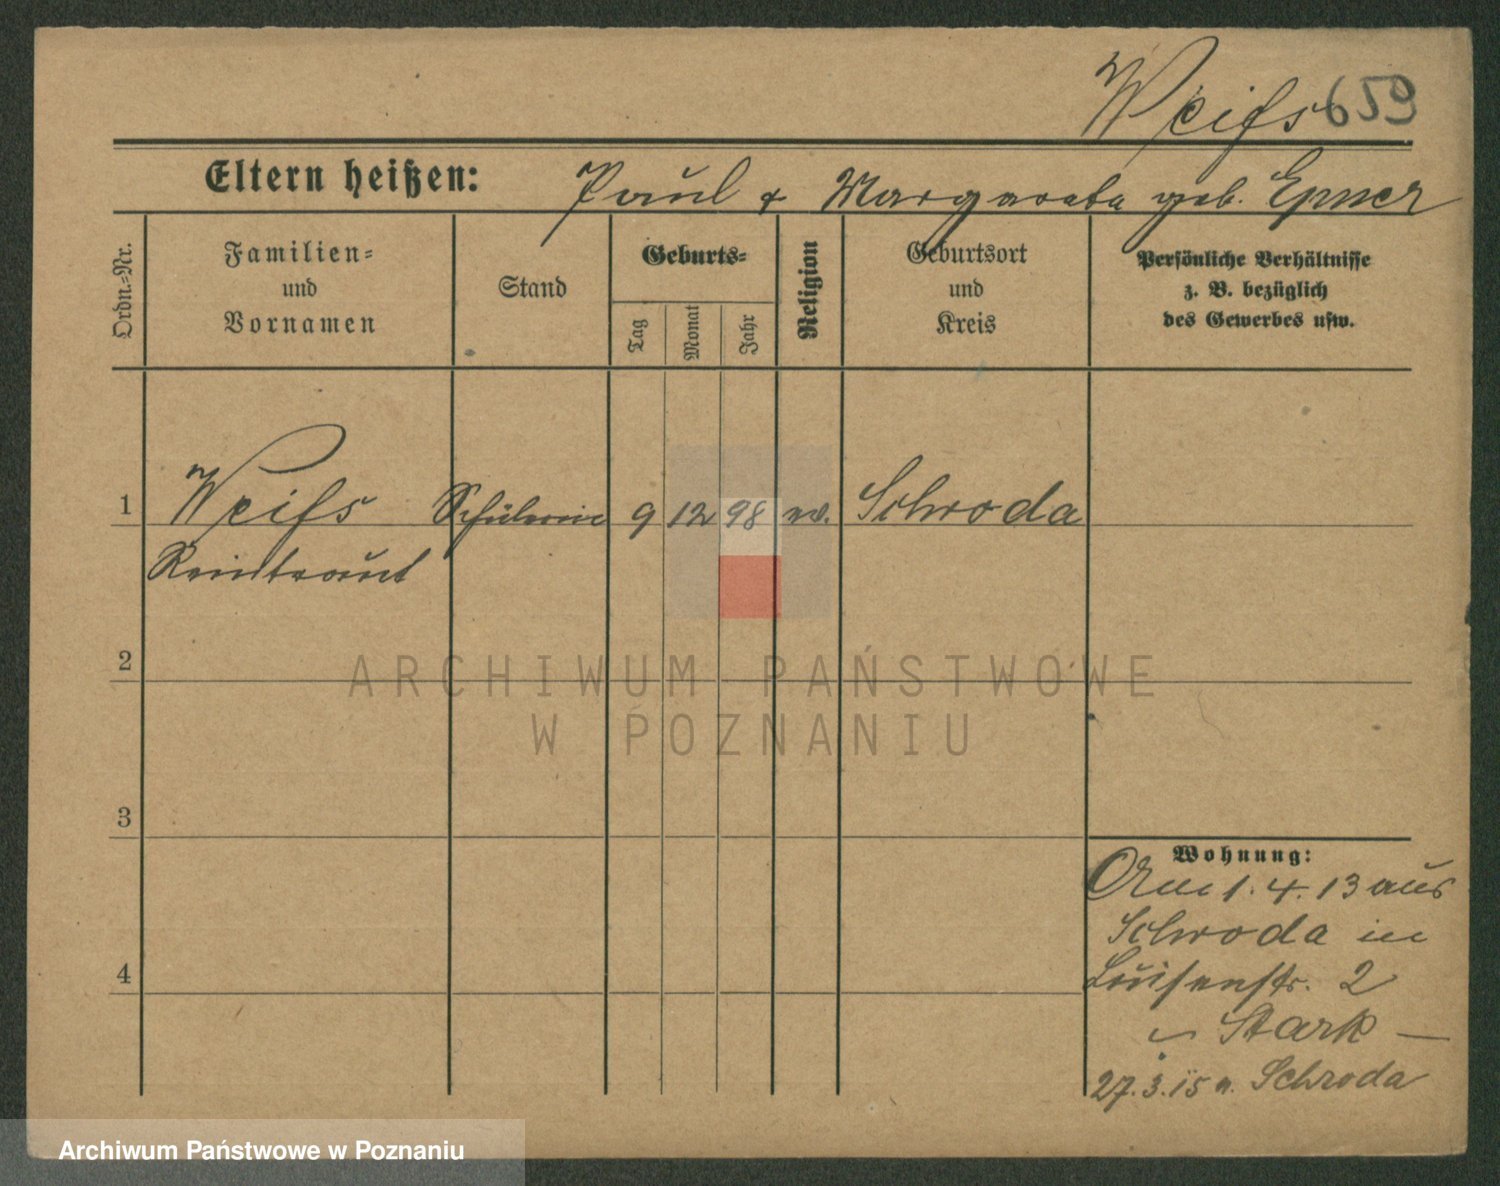 Weifs 659
Eltern heißen: Paul & Margarete geb. Epner
Ordn.-Nr.
Familien-
und
Vornamen
Stand
Geburts-
Tag
Monat
Jahr
Religion
Geburtsort
und
Kreis
Persönliche Verhältnisse
z. B. bezüglich
des Gewerbes usw.
1 Weifs Schülerin 9 12 98 ev. Schroda
Reintraut
2
3
4
Wohnung:
Am 1. 4. 13 aus
Schroda in
Luisenstr. 2
Stark —
27. 3. 15 n. Schroda
ARCHIWUM PAŃSTWOWE
W POZNANIU
Archiwum Państwowe w Poznaniu